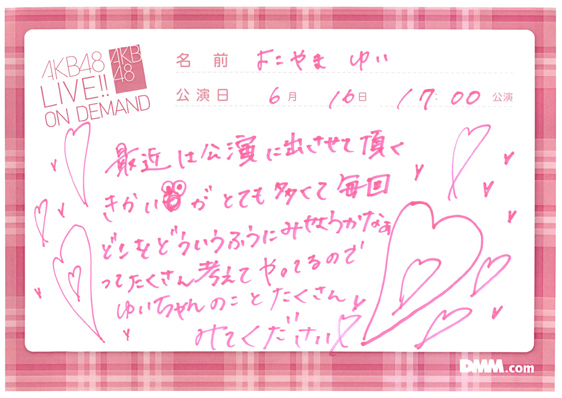 AKB48
LIVE!!
ON DEMAND
AKB
48
名前 よこやま ゆい
公演日 6月 16日 17:00 公演
最近は公演に出させて頂く
きかいがとても多くて毎回
どこをどういうふうにみせようかなぁ
ってたくさん考えてやってるので
ゆいちゃんのことたくさん
みてください
DMM.com